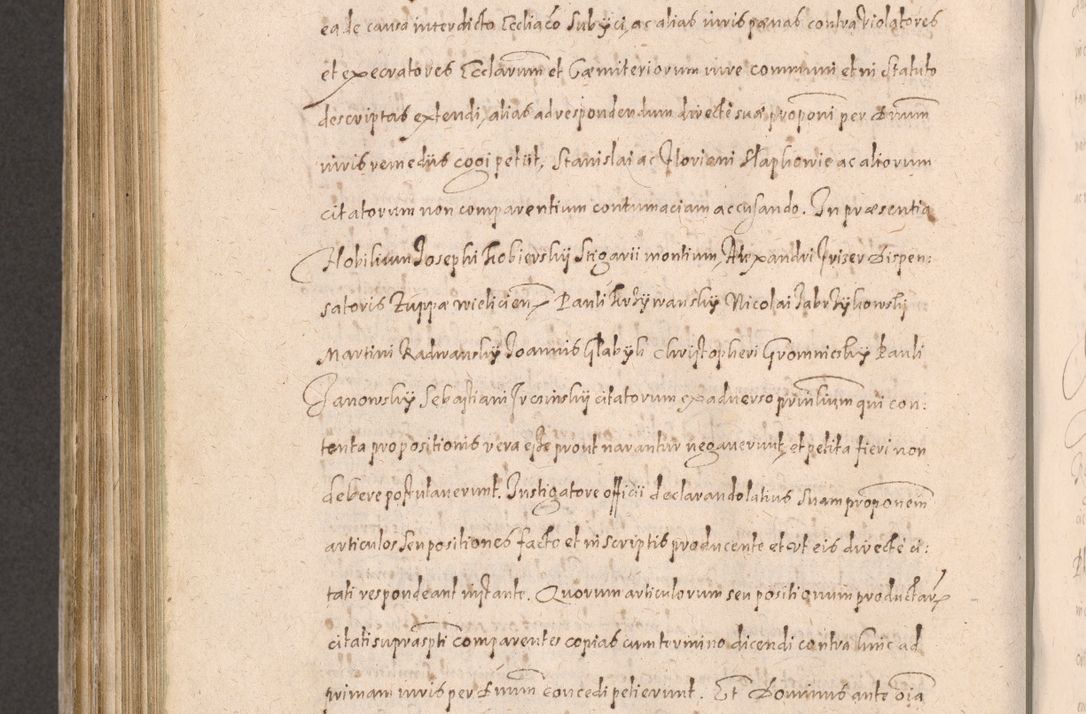 ea de causa interdicto Eccliaco subÿci, ac alias iuris pænas contra violatores
et execratores Ecclarum et Cæmiteriorum iure communi et in Statuto
descriptas extendi, alias ad respondendum directe suæ proponi per Dnum
iuris remediis cogi petiit, Stanislai ac Floriani Słaphowie ac aliorum
citatorum non comparentium contumaciam accusando. In præsentia
Nobilium Josephi Kobierskÿ Stigarii montium, Alexandri Priser Dispen:
satoris Zuppæ Wielicien, Pauli Krzÿwanskÿ Nicolai Jabrzÿkowskÿ
Martini Radwanskÿ Joannis Głabÿk Christopheri Gromnickÿ Pauli
Janowskÿ Sebastiani citatorum ex adverso prinlium qui con:
tenta propositionis vera esse prout narantur negaverunt, et petita fieri non
debere postulaverunt. Instigatore officii declarando latius suam proponem
articulos seu positiones facto et in scriptis producente et ut eis directe ci:
tati respondeant instante. Quorum articulorum seu positionum productar
citati suprascpti comparentes copias cum termino dicendi contra hinc ad
primam iuris per Dnum concedi petierunt. Et Dominus ante oia